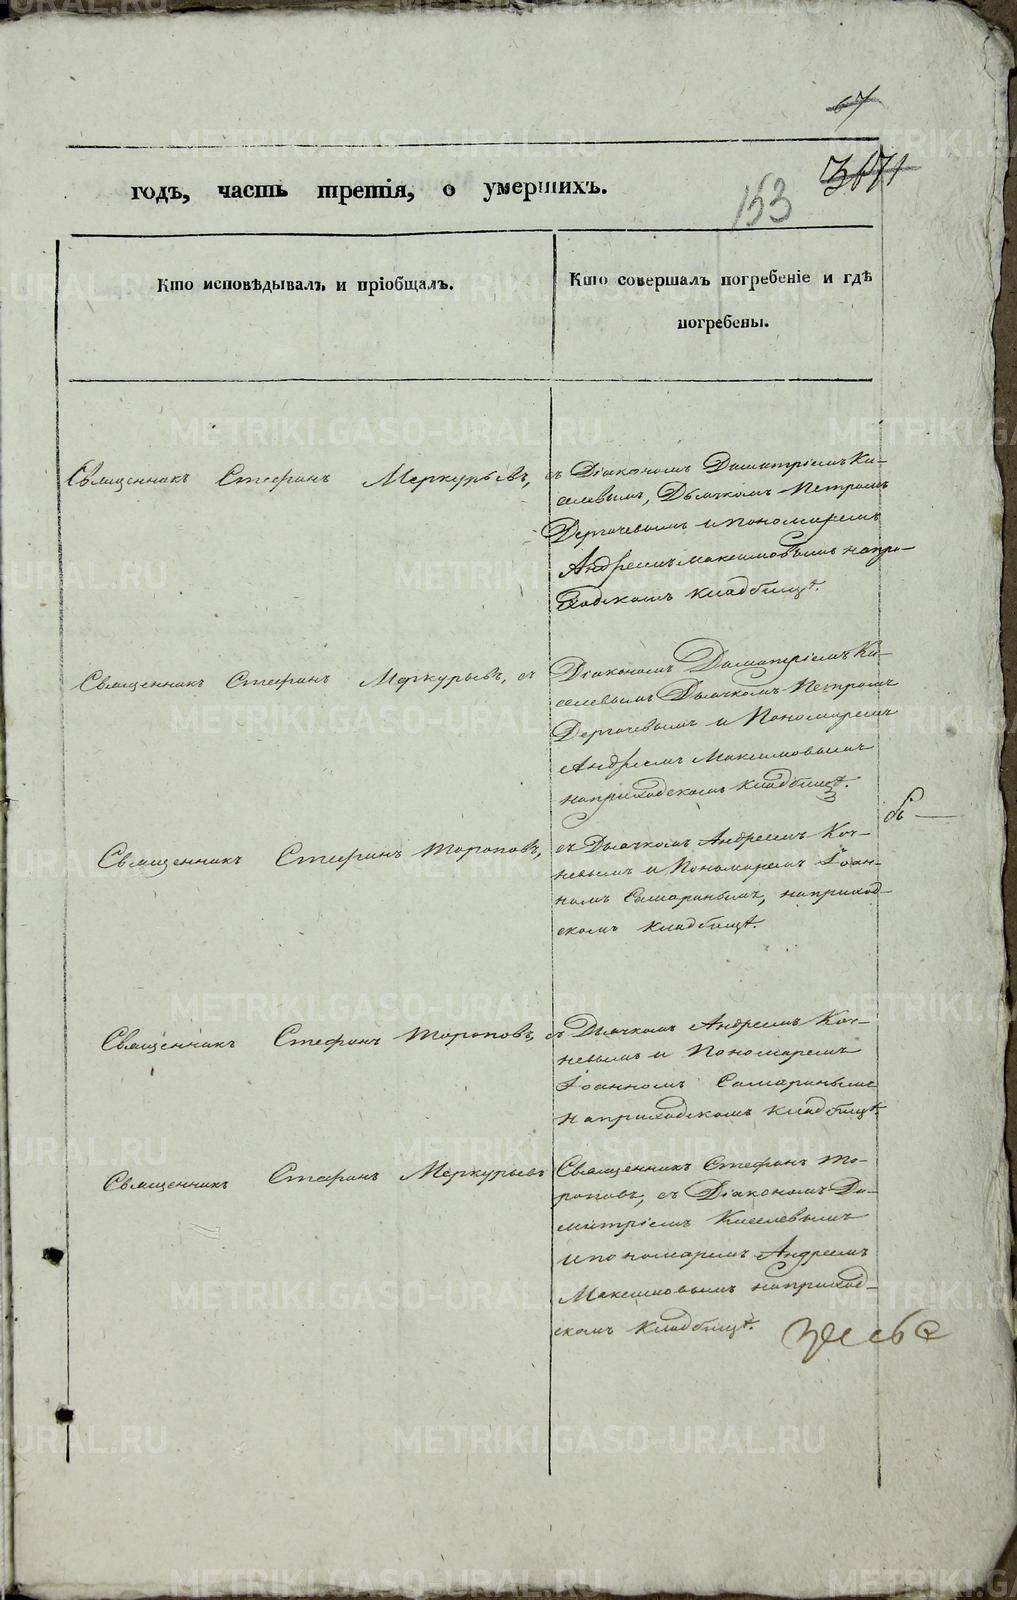 67
3671
153
годъ, часть третія, о умершихъ.
Кто исповѣдывалъ и пріобщалъ.
Кто совершалъ погребеніе и гдѣ
погребены.
Священникъ Стефанъ Меркурьевъ,
съ Діакономъ Димитріемъ Ки-
селевымъ, Дьячкомъ Петромъ
Дергачевымъ и пономаремъ
Андреемъ Максимовымъ на при-
ходскомъ кладбищѣ.
Священникъ Стефанъ Меркурьевъ, съ
Діакономъ Димитріемъ Ки-
селевымъ Дьячкомъ Петромъ
Дергачевымъ и Пономаремъ
Андреемъ Максимовымъ
на приходскомъ кладбищѣ.
Священникъ Стефанъ Тороповъ,
съ Дьячкомъ Андреемъ Коч-
невымъ и Пономаремъ Іоан-
номъ Самаринымъ, на приход-
скомъ кладбищѣ.
Священникъ Стефанъ Тороповъ,
съ Дьячкомъ Андреемъ Коч-
невымъ и Пономаремъ
Іоанномъ Самаринымъ
на приходскомъ кладбищѣ.
Священникъ Стефанъ Меркурьевъ
Священникъ Стефанъ То-
роповъ, съ Діакономъ Ди-
митріемъ Киселевымъ
и пономаремъ Андреемъ
Максимовымъ на приход-
скомъ кладбищѣ.
METRIKI.GASO-URAL.RU